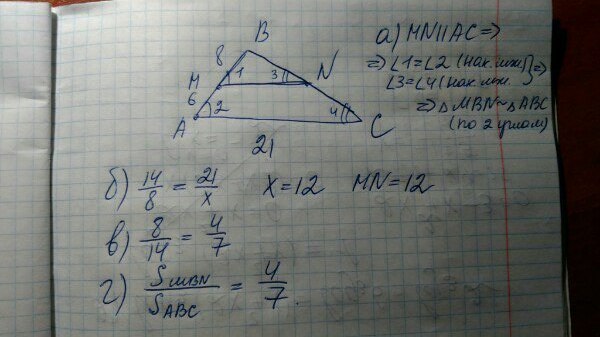 B
8
1
3
N
M
6
2
4
A
C
21
а) MN||AC =>
=> ∠1=∠2 (нак. леж.
∠3=∠4 (нак. леж. } =>
=> △MBN ~ △ABC
(по 2 углам)
б) 14/8 = 21/x x=12 MN=12
в) 8/14 = 4/7
г) S MBN / S ABC = 4/7